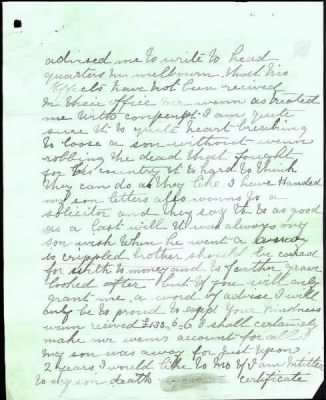 advised me to write to head
quarters in melbourn that his
Effects have not been recived
in their office mr wenn as treated
me with contempt I am quite
sure it is quite heart breaking
to loose a son without wenn
robbing the dead that fought
for his country it is hard to think
they can do as they like I have Handed
my son letters also wenns to a
solicitor and they say it is as good
as a last will it was always my
son wish when he went a away
is crippled brother should be cared
for with is money and is father grave
looked after but if you will only
grant me a word of advise I will
only be to proud to expt your kindness
wenn recived £133-6-6 I shall certainely
make mr wenns account for all
my son was away for just upon
2 years I would like to no if I am intitled
to my son death certificate